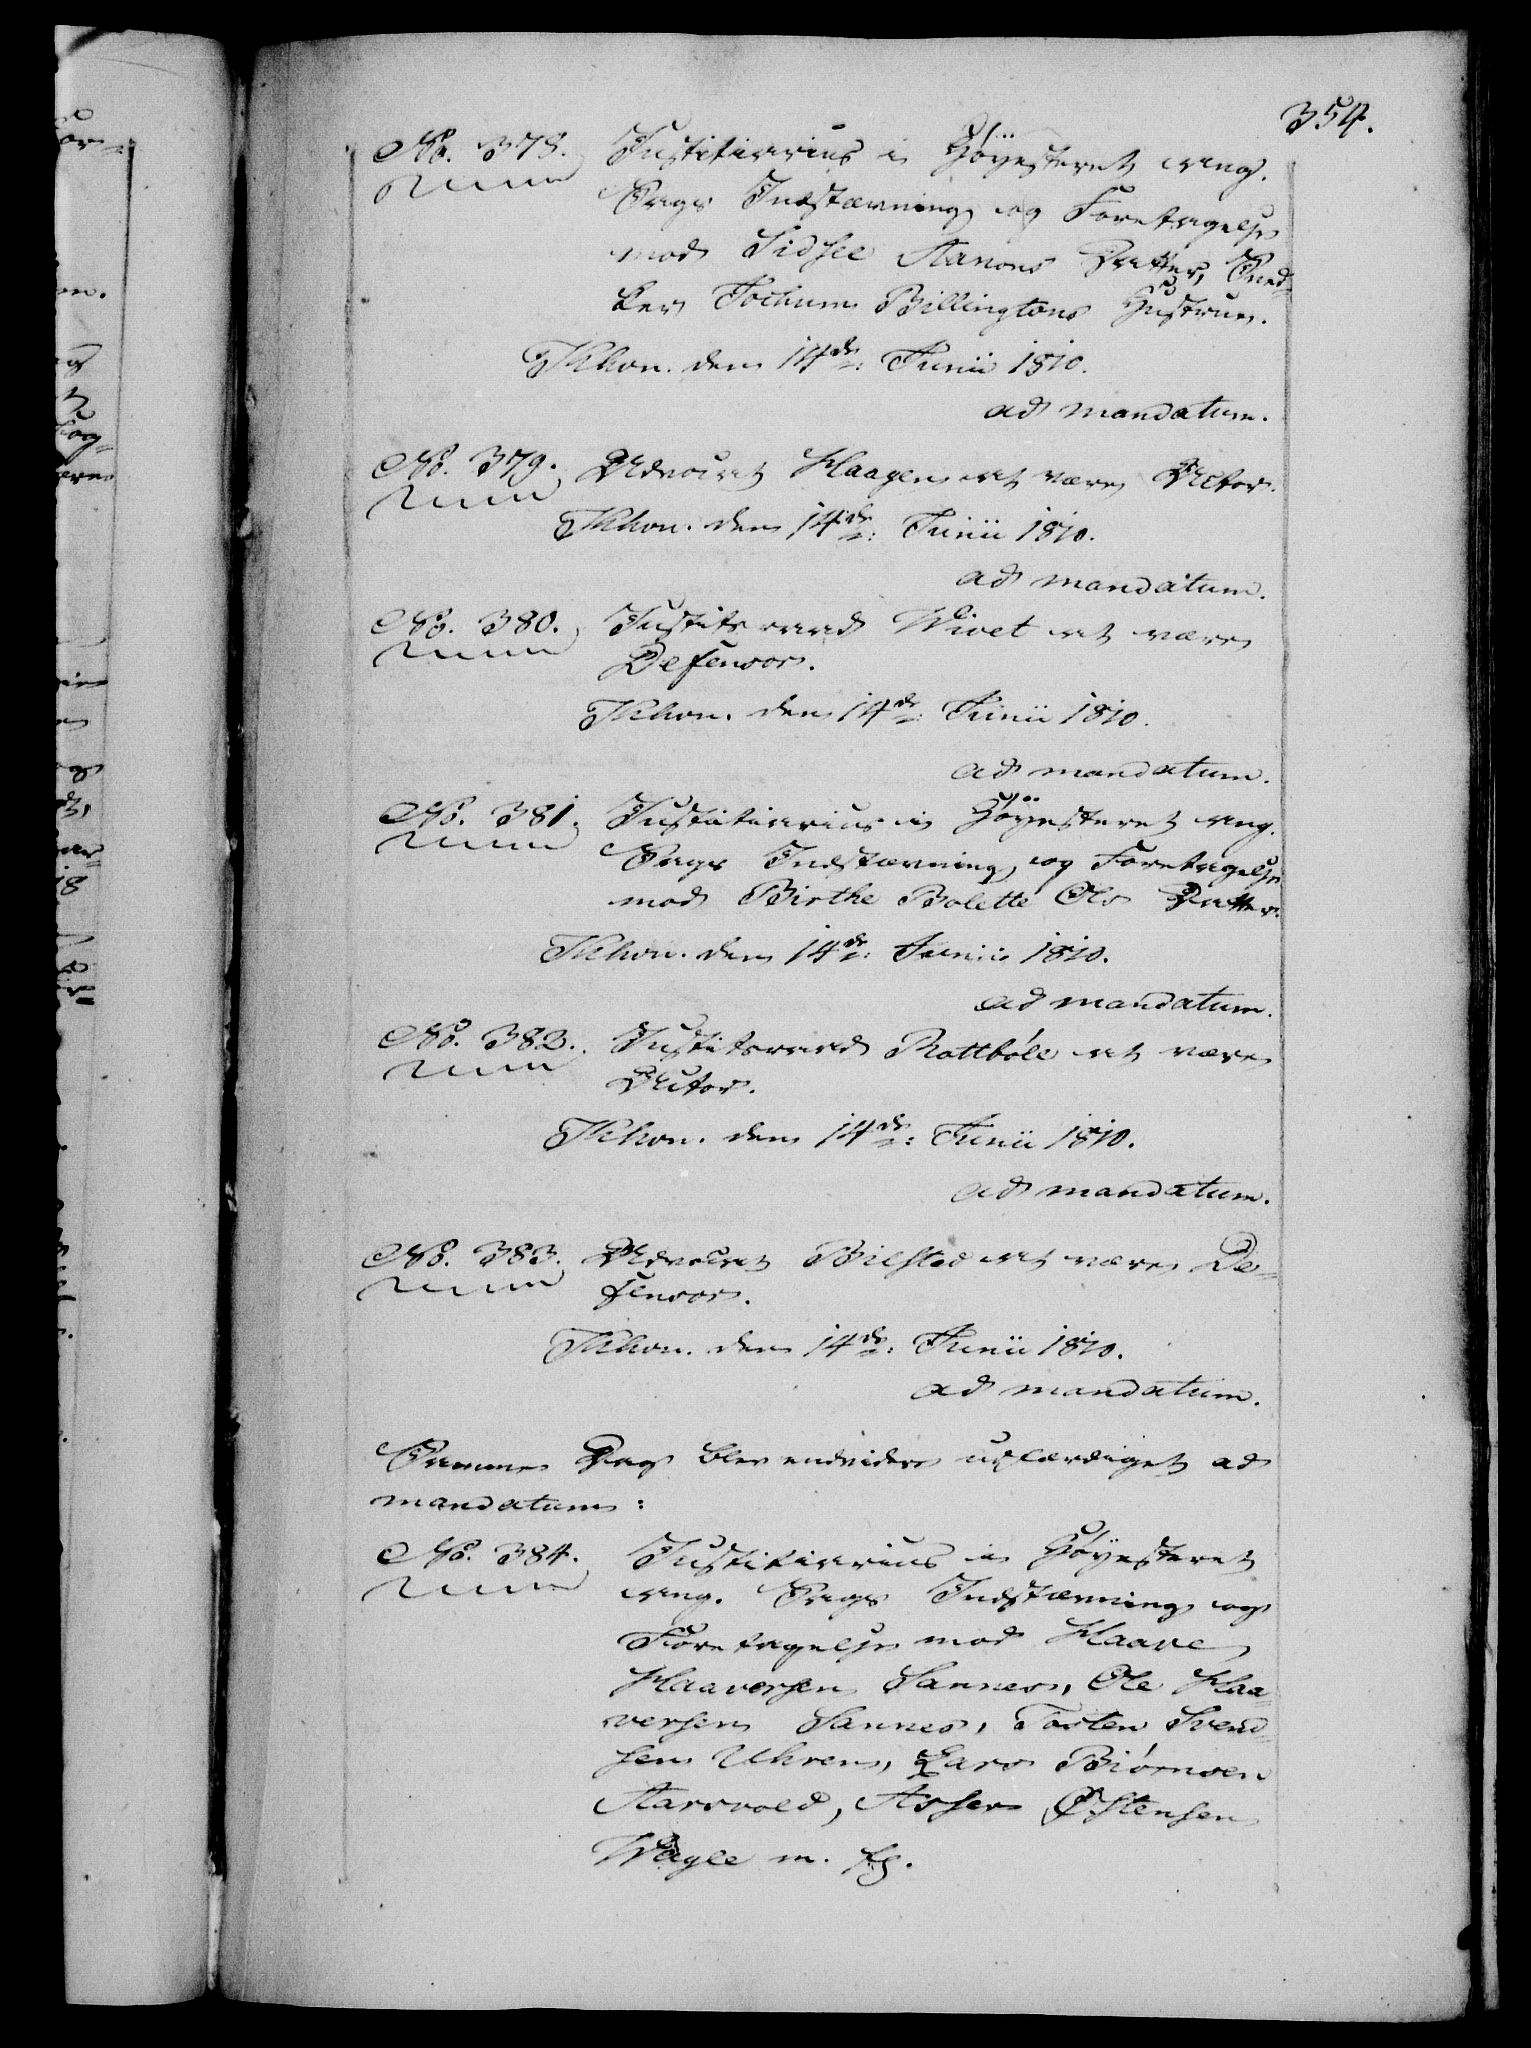 354.
No. 378. Justitiarius i Höyesteret ang.
Sags Indstævning og Foretagelse
mod Sidsee Aanons Datter, Sned-
ker Jochum Billingtons Hustrue.
Khvn. den 14de: Junii 1810.
ad mandatum.
No. 379. Advocat Haagen at være Actor.
Khvn. den 14de: Junii 1810.
ad mandatum.
No. 380. Justitsraad Wivet at være
Defensor.
Khvn. den 14de: Junii 1810.
ad mandatum.
No. 381. Justitiarius i Höyesteret ang.
Sags Indstævning og Foretagelse
mod Birthe Bolette Ols Datter.
Khvn. den 14de: Junii 1810.
ad mandatum.
No. 382. Justitsraad Rottbôle at være
Actor.
Khvn. den 14de: Junii 1810.
ad mandatum.
No. 383. Advocat Bilsted at være De-
fensor.
Khvn. den 14de: Junii 1810.
ad mandatum.
Samme Dag blev endvidere udfærdiget ad
mandatum:
No. 384. Justitiarius i Höyesteret
ang. Sags Indstævning og
Foretagelse mod Haave
Haaversen Sannes, Ole Haa-
versen Sannes, Torsten Svend-
sen Uhren, Lars Biörnsen
Aarsvold, Asser Østensen
Wagle m. fl.